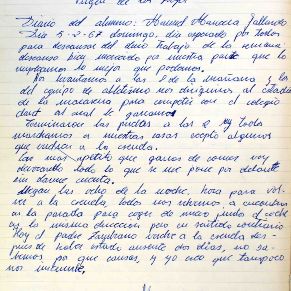 Virgen de los Reyes
Diario del alumno: Manuel Mancera Gallardo
Dia 5-2-67 domingo, dia esperado por todos
para descansar del duro trabajo de la semana
descanso bien merecido por nuestra parte que lo
empleamos lo mejor que podemos.
Nos levantamos a las 9 de la mañana y los
del equipo de atletismo nos dirigimos al estadio
de la macarena para competir con el colegio
al cual le ganamos
Terminaron las pruebas a las 2 y todos
marchamos a nuestras casas excepto algunos
que vuelven a la escuela.
Con más apetito que ganas de comer voy
devorando todo lo que se me pone por delante
sin darme cuenta,
llegan las ocho de la noche, hora para vol-
ver a la escuela, todos nos volvemos a encontrar
en la parada para coger de nuevo juntos el coche
en la misma direccion pero en sentido contrario
Hoy el padre Zambrano vuelve a la escuela des-
pues de haber estado ausente dos dias, no sa-
bemos por que causas, y yo creo que tampoco
nos interesa.